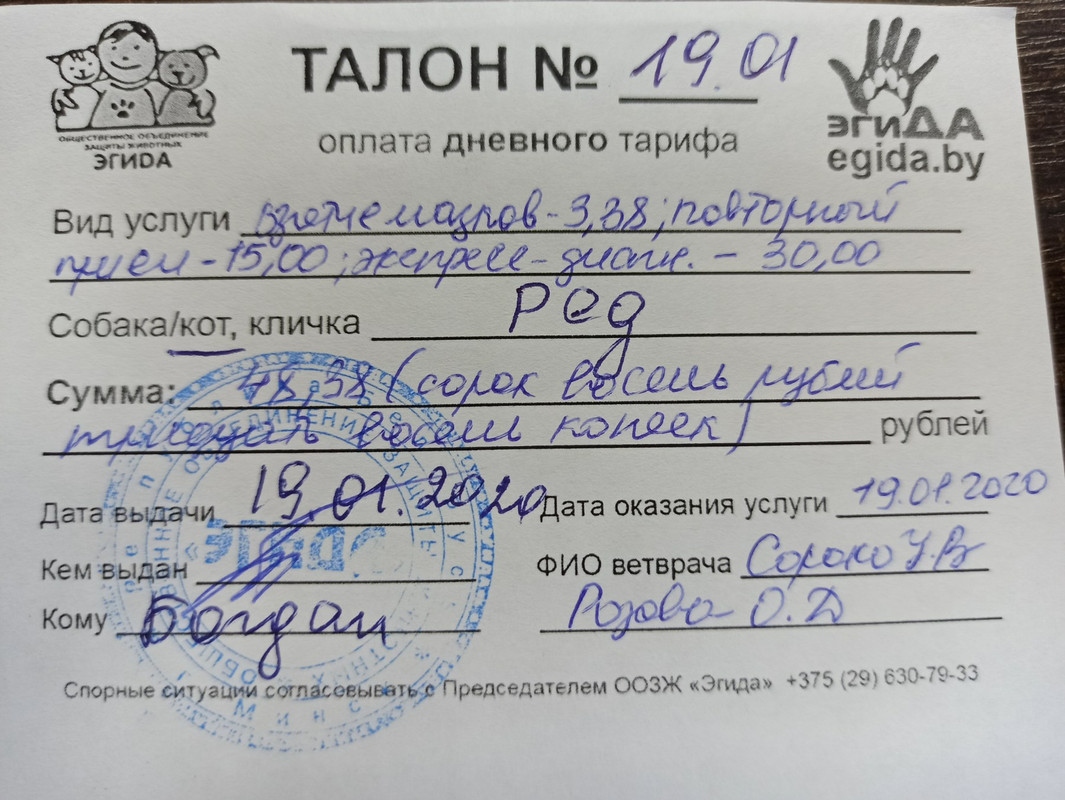 ОБЩЕСТВЕННОЕ ОБЪЕДИНЕНИЕ
ЗАЩИТЫ ЖИВОТНЫХ
ЭГИDА
ТАЛОН № 19.01
оплата дневного тарифа
эгиДА
egida.by
Вид услуги взятие мазков - 3,38; повторный
прием - 15,00; экспресс-диагн. - 30,00
Собака/кот, кличка Ред
Сумма: 48,38 (сорок восемь рублей
тридцать восемь копеек) рублей
Дата выдачи 19.01.2020 Дата оказания услуги 19.01.2020
Кем выдан ФИО ветврача Сороко У.В
Кому Богдан Розова О.Д
Спорные ситуации согласовывать с Председателем ООЗЖ «Эгида» +375 (29) 630-79-33